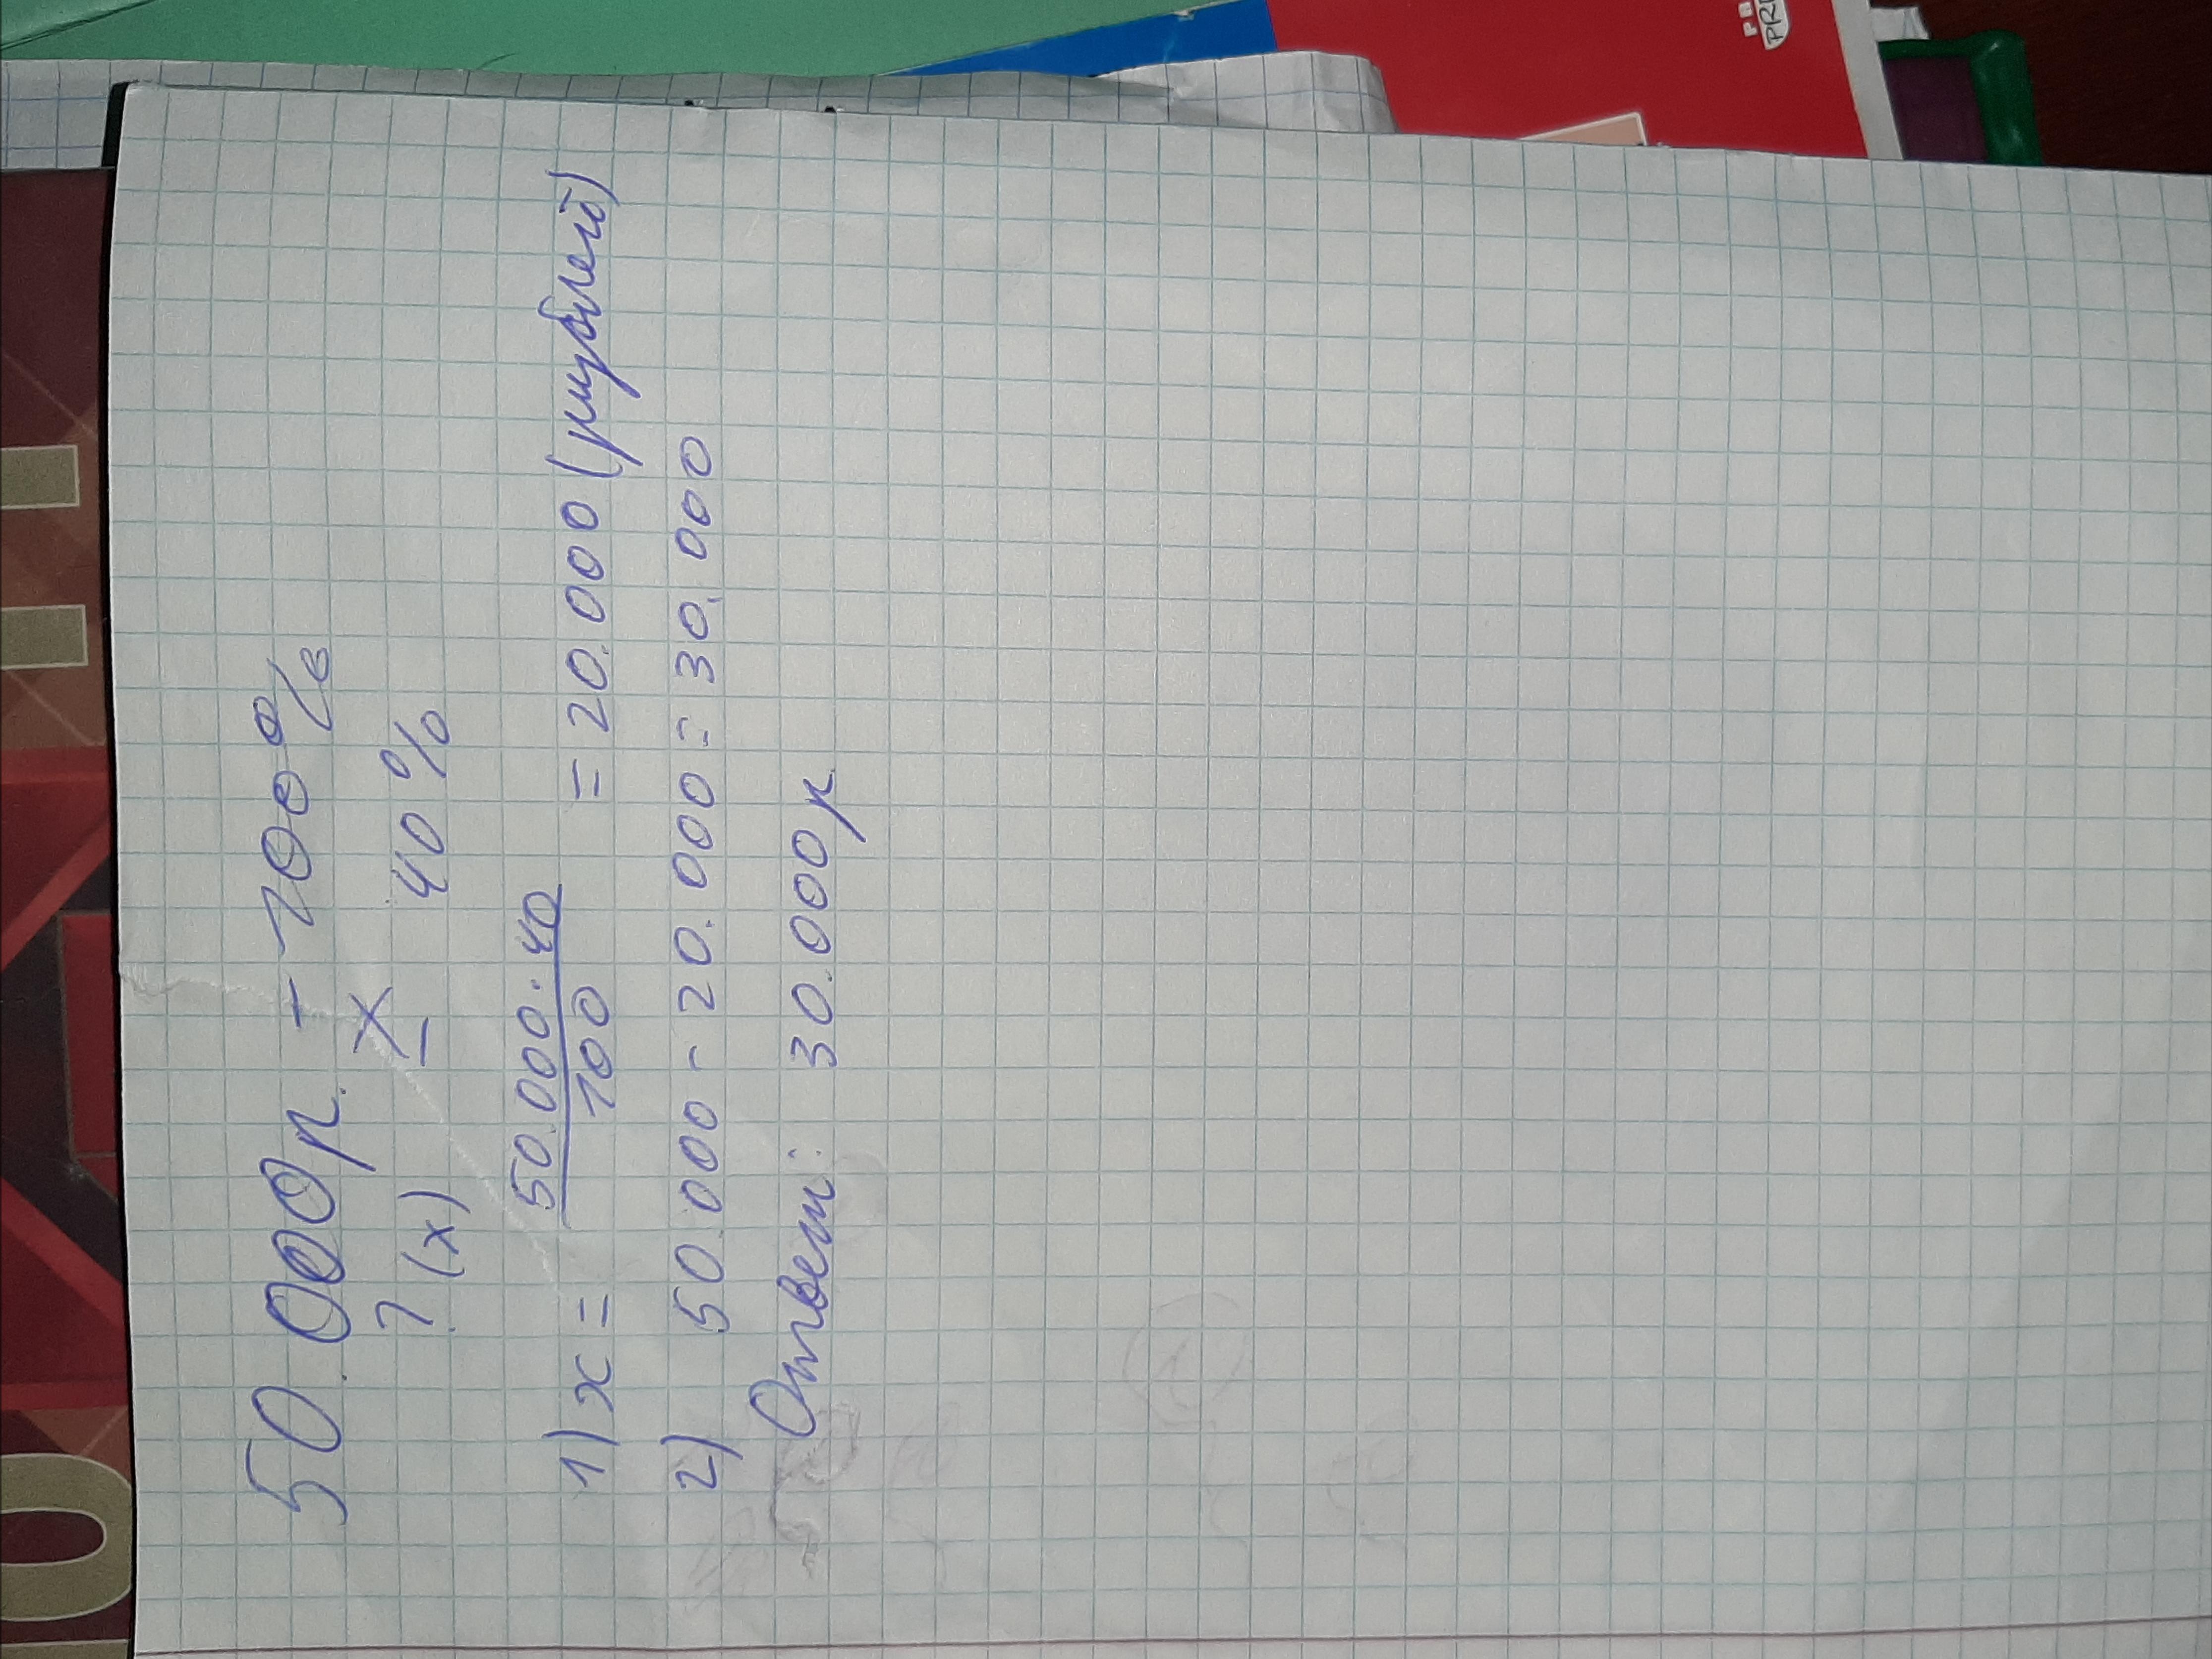 50.000р. - 100%
? (х) - х 40%
1) х = 50.000·40 / 100 = 20.000 (рублей)
2) 50.000 - 20.000 = 30.000
Ответ: 30.000 р